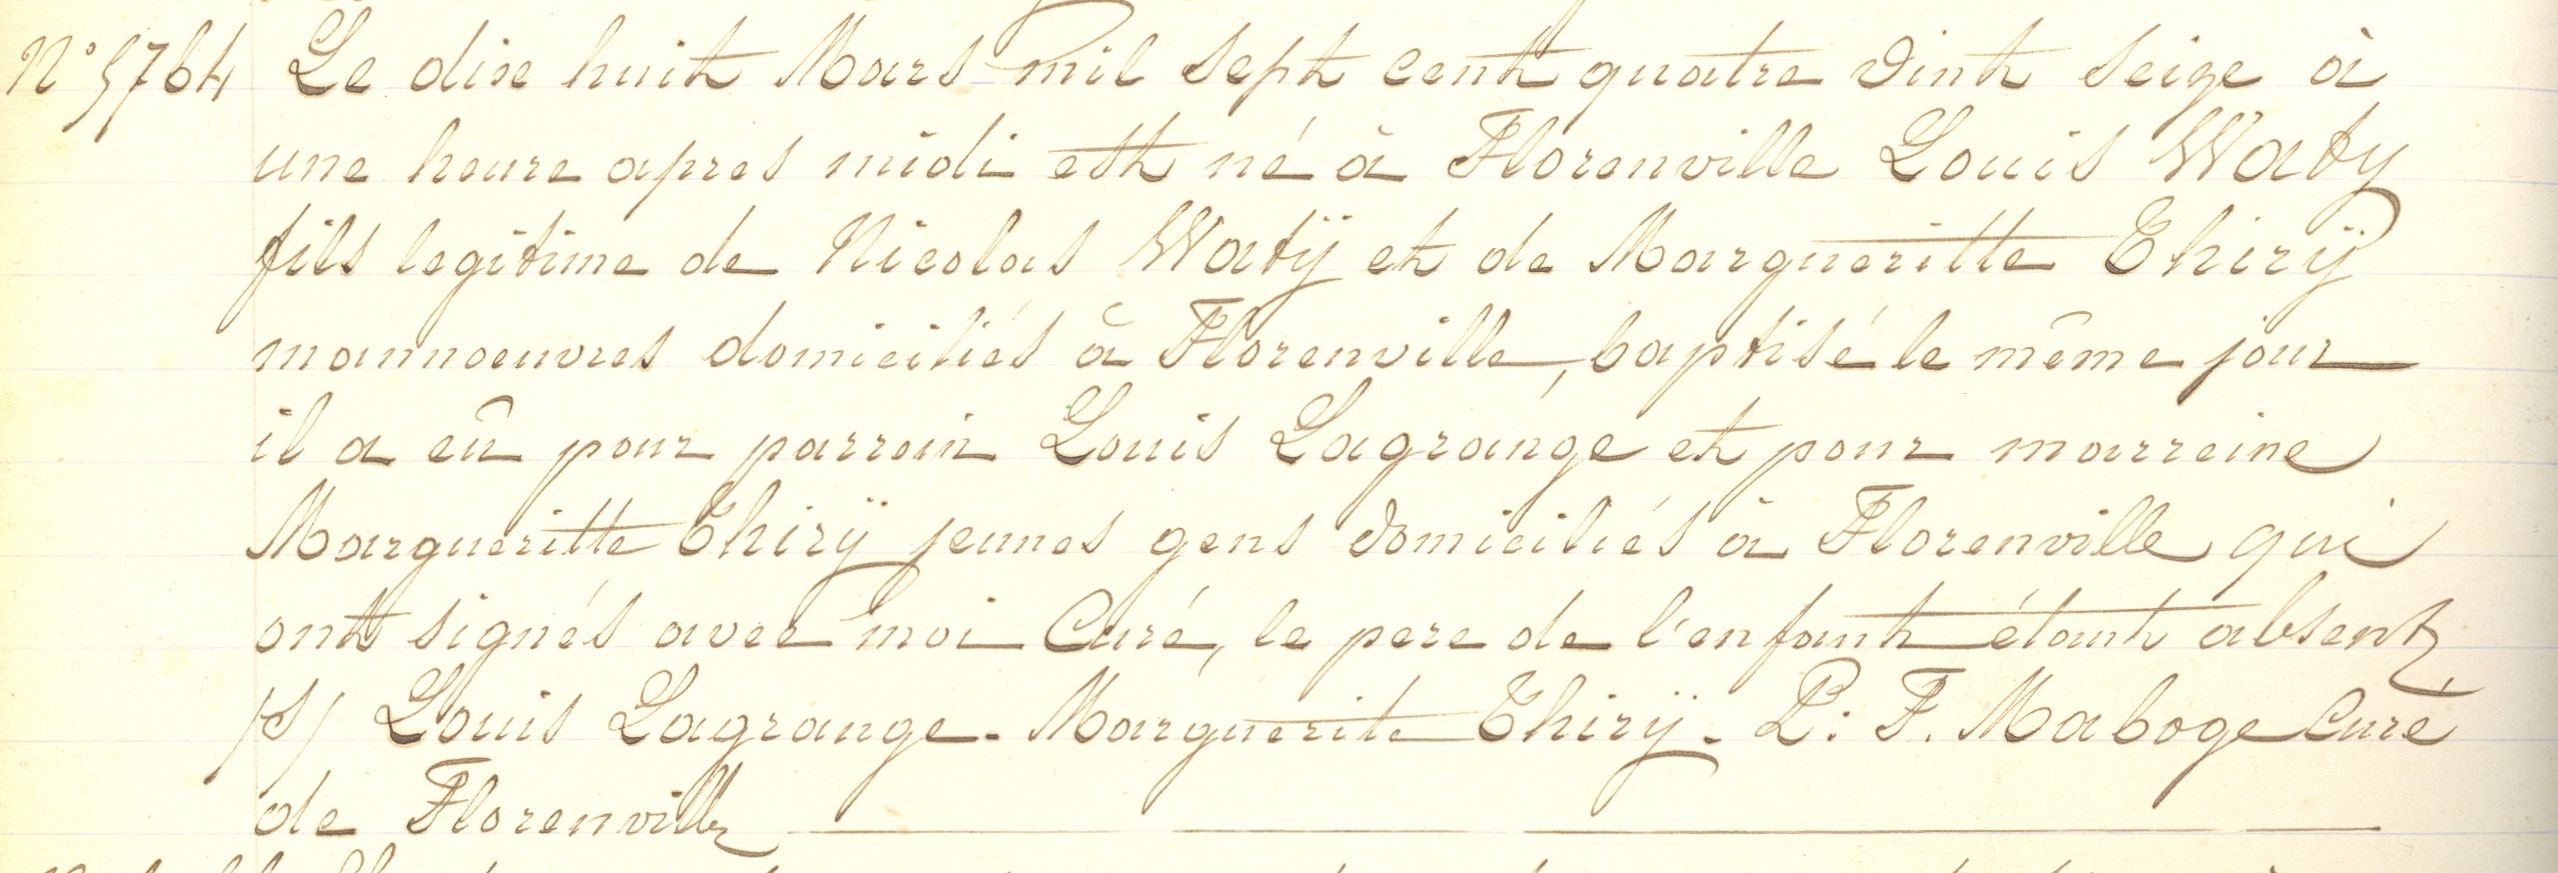 N° 5764 Le dix huit Mars mil sept cent quatre vint seize à
une heure apres midi est né à Florenville Louis Waty
fils legitime de Nicolas Watÿ et de Margueritte Thirÿ
mannoeuvres domiciliés à Florenville, baptisé le même jour
il a eû pour parrain Louis Lagrange et pour marraine
Margueritte Thirÿ jeunes gens domiciliés à Florenville qui
ont signés avec moi Curé, le pere de l'enfant étant absent
/S/ Louis Lagrange. Marguerite Thirÿ. P: F. Maboge Curé
de Florenville